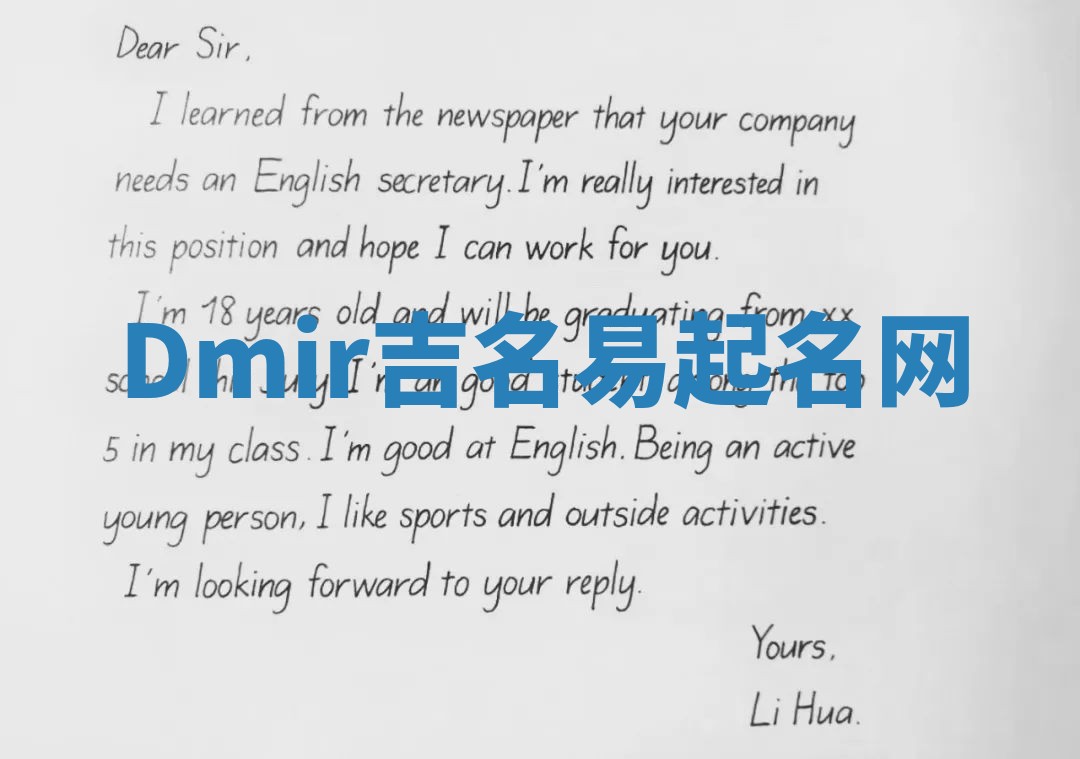 Dear Sir,
I learned from the newspaper that your company
needs an English secretary. I'm really interested in
this position and hope I can work for you.
I'm 18 years old and will be graduating from xx
Dmir吉名易起名网
July. I'm good student among the top
5 in my class. I'm good at English. Being an active
young person, I like sports and outside activities.
I'm looking forward to your reply.
Yours,
Li Hua.